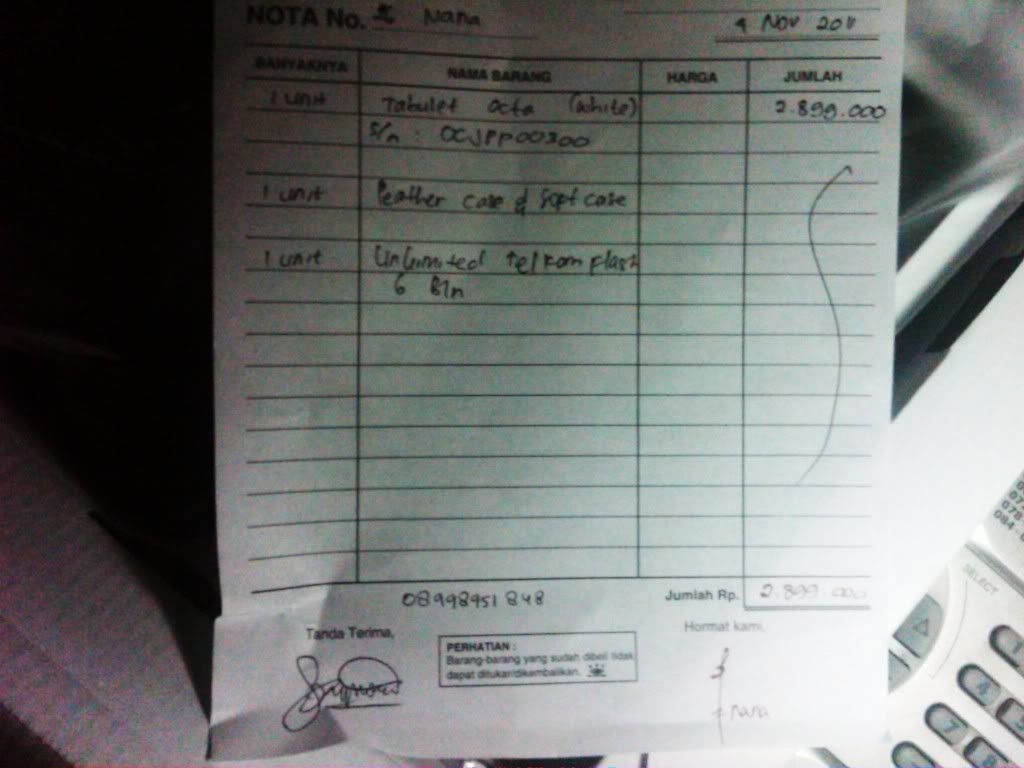 NOTA No. Nana
4 Nov 2011
BANYAKNYA NAMA BARANG HARGA JUMLAH
1 unit Tabulet Octa (white) 2.899.000
S/n : OCJPP00300
1 unit Leather case & soft case
1 unit Unlimited Telkom flash
6 Bln
08998951848
Jumlah Rp. 2.899.000
Tanda Terima,
Hormat kami,
PERHATIAN :
Barang-barang yang sudah dibeli tidak
dapat ditukar/dikembalikan.
nana
SELECT
1
4
5
7
8